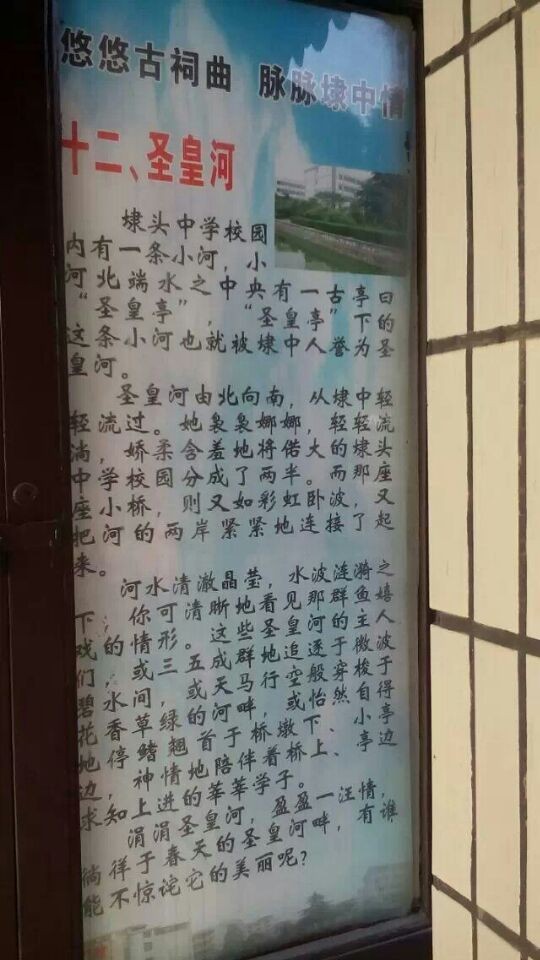 悠悠古祠曲 脉脉埭中情
十二、圣皇河
埭头中学校园
内有一条小河，小
河北端水之中央有一古亭曰
“圣皇亭”，“圣皇亭”下的
这条小河也就被埭中人誉为圣
皇河。
圣皇河由北向南，从埭中轻
轻流过。她袅袅娜娜，轻轻流
淌，娇柔含羞地将偌大的埭头
中学校园分成了两半。而那座
座小桥，则又如彩虹卧波，又
把河的两岸紧紧地连接了起
来。
河水清澈晶莹，水波涟漪之
下，你可清晰地看见那群鱼嬉
戏的情形。这些圣皇河的主人
们，或三五成群地追逐于微波
碧水间，或天马行空般穿梭于
花香草绿的河畔，或怡然自得
地停鳍翘首于桥墩下、小亭
边，神情地陪伴着桥上、亭边
求知上进的莘莘学子。
涓涓圣皇河，盈盈一汪情，
徜徉于春天的圣皇河畔，有谁
能不惊诧它的美丽呢？